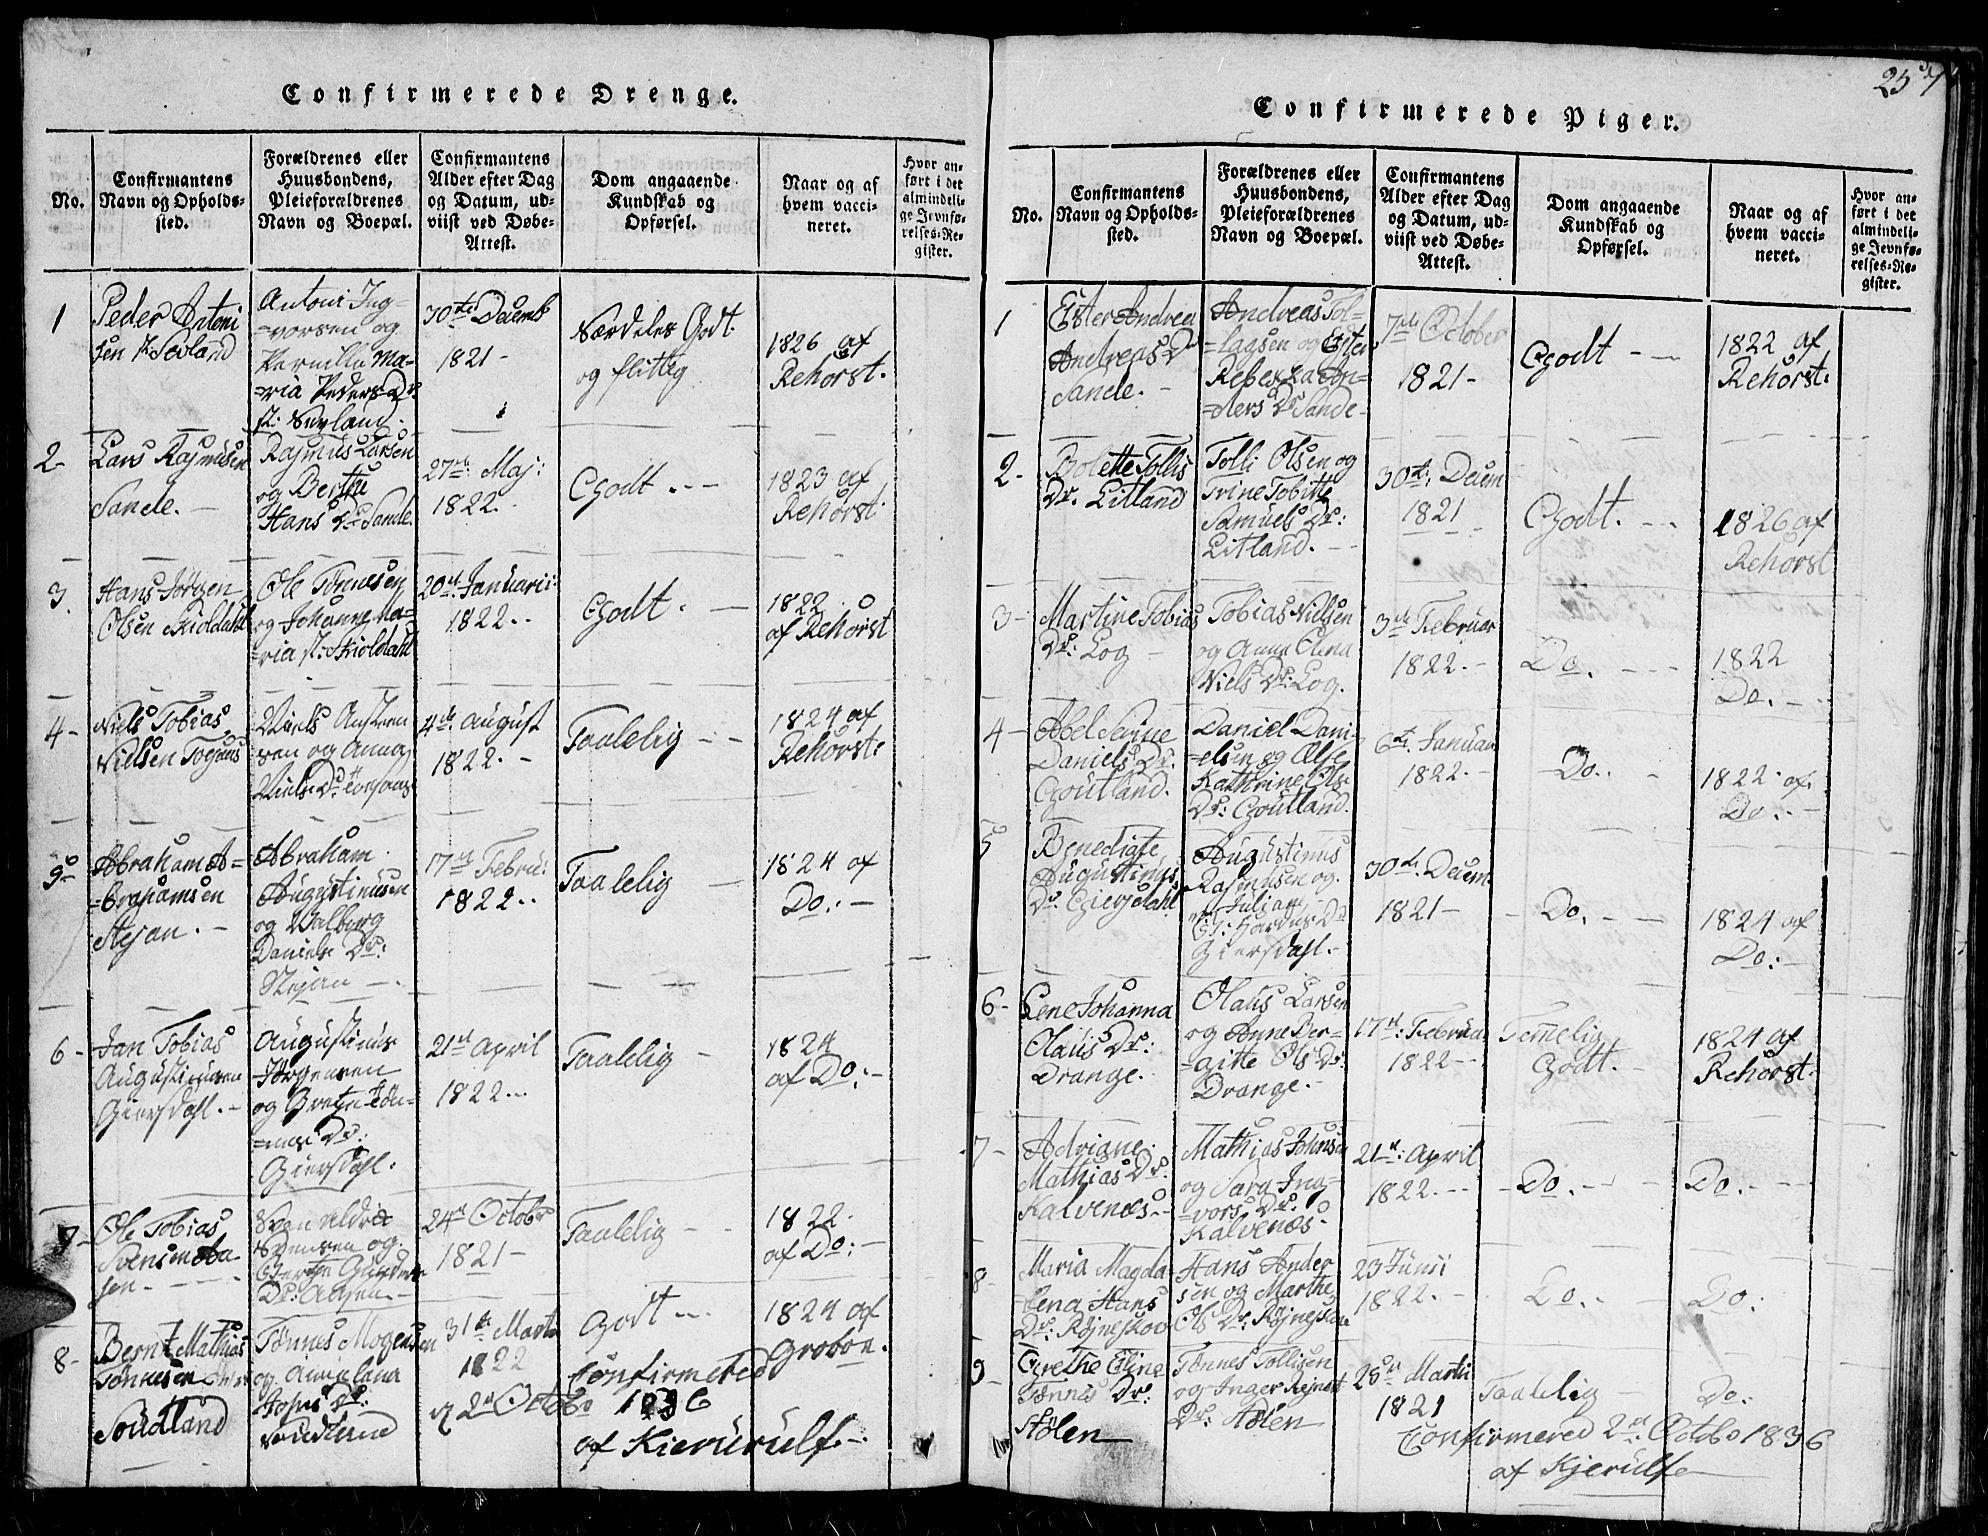 Confirmerede Drenge.
No.
Confirmantens
Navn og Opholds-
sted.
Forældrenes eller
Huusbondens,
Pleieforældrenes
Navn og Boepæl.
Confirmantens
Alder efter Dag
og Datum, ud-
viist ved Døbe-
Attest.
Dom angaaende
Kundskab og
Opførsel.
Naar og af
hvem vacci-
neret.
Hvor an-
ført i det
almindeli-
ge Jevnfø-
relses-Re-
gister.
1
Peder Antoni
sen
Antoni Ing-
=vorsen og
Pernille Ma-
=ria Peders Dr
30te Decemb
1821 -
Særdeles Godt
og flittig
1826 af
Rehorst.
2-
Lars Rasmusen
Sande. -
Rasmus Larsen
og Berthe
Hans Dr Sande.
27de Maj:
1822.
Godt. - -
1823 af
Rehorst.
3.
Hans Jørgen
Olsen Skioldahl
Ole Tønnesen
og Johanne Ma-
=ria Skioldahl
20de Januari:
1822. -
Godt. -
1822
af Rehorst
4-
Niels Tobias
Nielsen
Niels
og Anna
Niels Dr
4de August
1822. -
Taalelig - -
1824 af
Rehorst.
5-
Abraham A=
=brahamsen
Abraham
Augustinusen
og Walborg
Daniels Dr:
17de Febru:
1822. -
Taalelig -
1824 af
Do. -
6-
Jan Tobias
Augustinusen
Giersdahl. -
Augustinus
Jørgensen
og
Dr:
Giersdahl.
21de April
1822. -
Taalelig -
1824
af Do: -
7-
Ole Tobias
Svensen Aa-
sen. - - -
Sven
Svensen og
Berthe
Dr: Aasen. -
24de Octobr
1821 -
Taalelig - -
1822.
af Do: -
8-
Bernt Mathias
Tønnesen
Soudland
Tønnes Mogensen
og
Dr:
Soudland
31te Marti
1822
Godt. -
1824 af
Groboe.
Confirmered
d 2den Octobr 1836
af Kierurulf. -
257
Confirmerede Piger.
No.
Confirmantens
Navn og Opholds-
sted.
Forældrenes eller
Huusbondens,
Pleieforældrenes
Navn og Boepæl.
Confirmantens
Alder efter Dag
og Datum, ud-
viist ved Døbe-
Attest.
Dom angaaende
Kundskab og
Opførsel.
Naar og af
hvem vacci-
neret.
Hvor an-
ført i det
almindeli-
ge Jevnfø-
relses-Re-
gister.
1
Ester Andrea
Andreas Dr
Sande. -
Andreas Tol-
=lagsen og Ester
Rebekka An-
=ders Dr Sande -
7de October
1821 -
Godt - -
1822 af
Rehorst.
2-
Bolette Tollis
Dr. Litland
Tolli Olsen og
Trine Tobitte
Samuels Dr:
Litland. -
30te Decem
1821
Godt. - -
1826 af
Rehorst
3-
Martine Tobias
Dr: Log -
Tobias Nielsen
og Anna Elena
Niels Dr: Log.
3de Februar
1822. -
Do. - - -
1822
Do. -
4-
Abel Serine
Daniels Dr:
Goutland.
Daniel Dani-
=elsen og Else
Kathrine Ols
Dr: Goutland.
6te Januar
1822. -
Do. -
1822. af
Do. -
5
Benedigte
Augustinus
Dr. Giersdahl
Augustinus
Rasmusen og
Juliane
Giersdahl. -
30te Decem.
1821 -
- Do. - -
1824 af
Do: -
6-
Lene Johanna
Olaus Dr:
Drange. -
Olaus Larsen
og Anne Ber-
=gitte Ols Dr:
Drange. -
17de: Februar
1822 -
Temelig
Godt. -
1824 af
Rehorst.
7-
Adriane
Mathias Dr:
Kalvenes. -
Mathias Johnsen
og Sara Ing-
=vors Dr:
Kalvenes.
21de: April
1822. -
- Do. - -
Do. - -
8-
Maria Magda
Lena Hans
Dr: Røjneskov
Hans Ander
sen og Marthe
Ols Dr: Røjneskov
23 Junii
1822. -
Do. -
Do:
9
Grethe Eline
Tønnes Dr:
Stølen
Tønnes Tollisen
og Inger Rejnert
Dr: Stølen
28de Marti
1821
Taalelig -
Do:
Confirmered 2den Octobr 1836
af Kjerulf